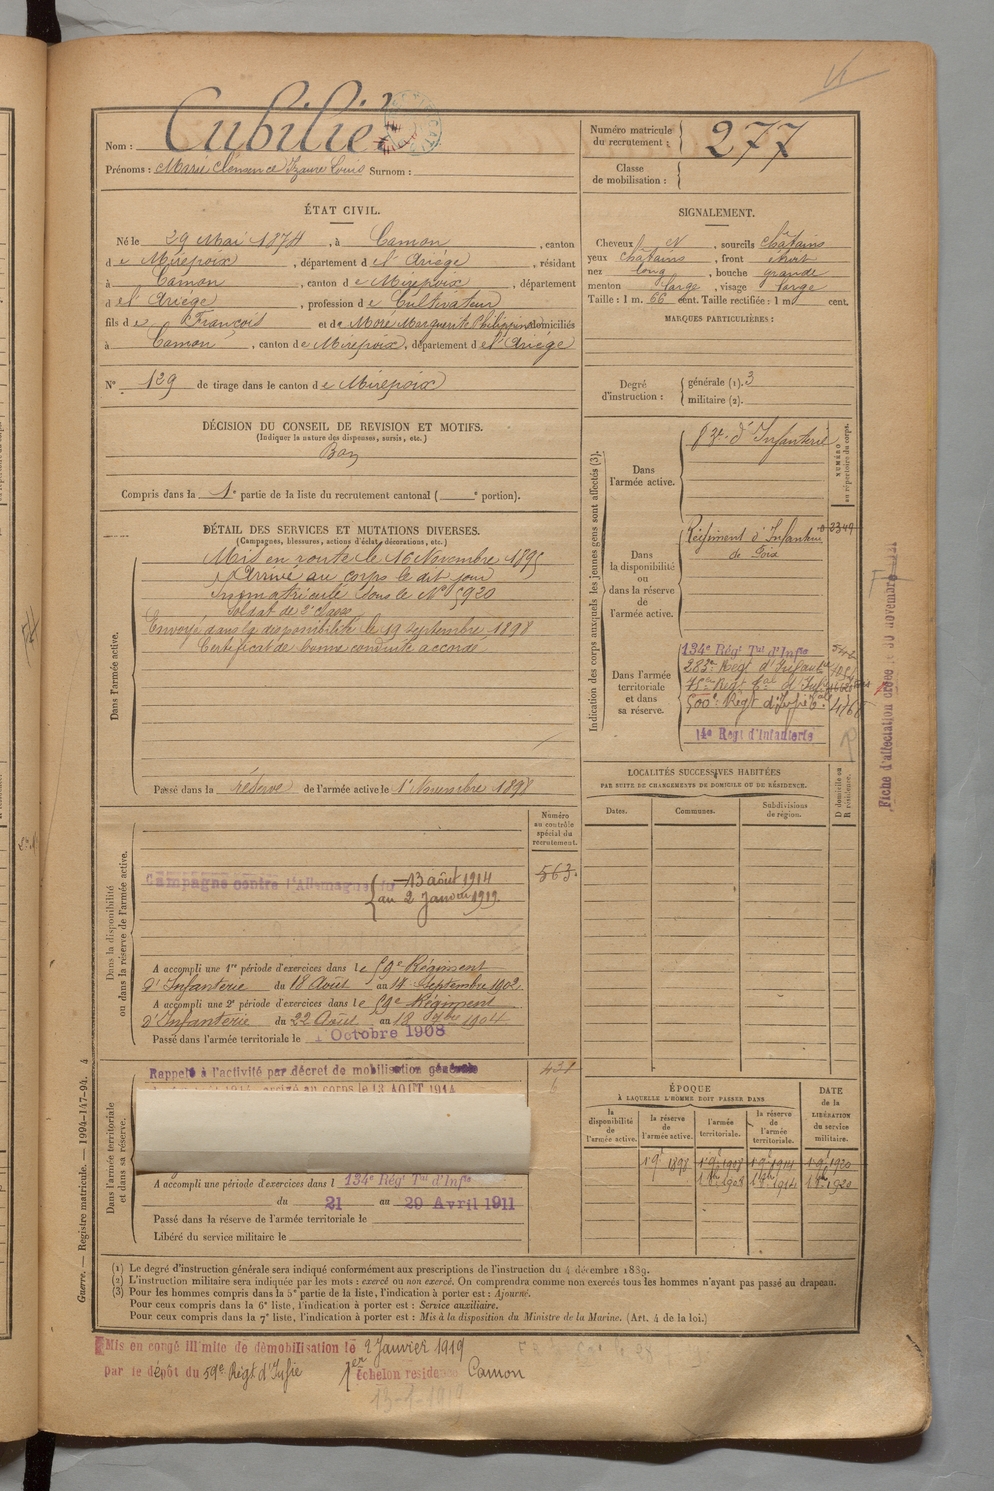 Nom : Cubilié
Prénoms : Marie Clémence Izaure Louis Surnom :
Numéro matricule du recrutement : 277
Classe de mobilisation :
ÉTAT CIVIL.
Né le 29 Mai 1874, à Camon, canton
de Mirepoix, département de l'Ariège, résidant
à Camon, canton de Mirepoix, département
de l'Ariège, profession de Cultivateur
fils de François et de Moré Marguerite Philippine domiciliés
à Camon, canton de Mirepoix, département de l'Ariège
N° 129 de tirage dans le canton de Mirepoix
SIGNALEMENT.
Cheveux N, sourcils châtains
yeux châtains, front
nez long, bouche grande
menton large, visage large
Taille : 1 m. 66 cent. Taille rectifiée : 1 m cent.
MARQUES PARTICULIÈRES :
Degré d'instruction : générale (1). 3
militaire (2).
DÉCISION DU CONSEIL DE REVISION ET MOTIFS.
(Indiquer la nature des dispenses, sursis, etc.)
Bon
Compris dans la 1e partie de la liste du recrutement cantonal ( e portion).
DÉTAIL DES SERVICES ET MUTATIONS DIVERSES.
(Campagnes, blessures, actions d'éclat, décorations, etc.)
Dans l'armée active.
Mis en route le 16 Novembre 1895
Arrivé au corps le dit jour
Immatriculé sous le N° 5920
Soldat de 2e classe
Envoyé dans la disponibilité le 19 Septembre 1898
Certificat de bonne conduite accordé
Passé dans la réserve de l'armée active le 1r Novembre 1898
Indication des corps auxquels les jeunes gens sont affectés (3).
NUMÉRO au répertoire du corps.
Dans l'armée active.
d'Infanterie
Dans la disponibilité ou dans la réserve de l'armée active.
Régiment d'Infanterie 3349
de Foix
Dans l'armée territoriale et dans sa réserve.
134e Régt Tal d'Infie
283e Régt d'Infanterie
500e Régt d'Infie
14e Regt d'Infanterie
Fiche d'affectation créée le 30 novembre
LOCALITÉS SUCCESSIVES HABITÉES
PAR SUITE DE CHANGEMENTS DE DOMICILE OU DE RÉSIDENCE.
Dates. Communes. Subdivisions de région. D domicile ou R résidence.
Numéro au contrôle spécial du recrutement.
563.
Dans la disponibilité ou dans la réserve de l'armée active.
Campagne contre l'Allemagne du 13 août 1914
au 2 Janvier 1919.
A accompli une 1re période d'exercices dans le 59e Régiment
d'Infanterie du 18 Août au 14 Septembre 1902
A accompli une 2e période d'exercices dans le 59e Régiment
d'Infanterie du 22 Août au 18 7bre 1904
Passé dans l'armée territoriale le 1 Octobre 1908
Dans l'armée territoriale et dans sa réserve.
Rappelé à l'activité par décret de mobilisation générale
arrivé au corps le 13 AOUT 1914
A accompli une période d'exercices dans l 134e Régt Tal d'Infie
du 21 au 29 Avril 1911
Passé dans la réserve de l'armée territoriale le
Libéré du service militaire le
ÉPOQUE
À LAQUELLE L'HOMME DOIT PASSER DANS
la disponibilité de l'armée active.
la réserve de l'armée active.
l'armée territoriale.
la réserve de l'armée territoriale.
DATE de la LIBÉRATION du service militaire.
1 9e 1898 1 9e 1908 1 9e 1914 1 9e 1920
(1) Le degré d'instruction générale sera indiqué conformément aux prescriptions de l'instruction du 4 décembre 1889.
(2) L'instruction militaire sera indiquée par les mots : exercé ou non exercé. On comprendra comme non exercés tous les hommes n'ayant pas passé au drapeau.
(3) Pour les hommes compris dans la 5e partie de la liste, l'indication à porter est : Ajourné.
Pour ceux compris dans la 6e liste, l'indication à porter est : Service auxiliaire.
Pour ceux compris dans la 7e liste, l'indication à porter est : Mis à la disposition du Ministre de la Marine. (Art. 4 de la loi.)
Guerre. — Registre matricule. — 1994-147-94. 4
Mis en congé illimité de démobilisation le 2 Janvier 1919
par le dépôt du 59e Régt d'Infie 1er échelon résidence Camon